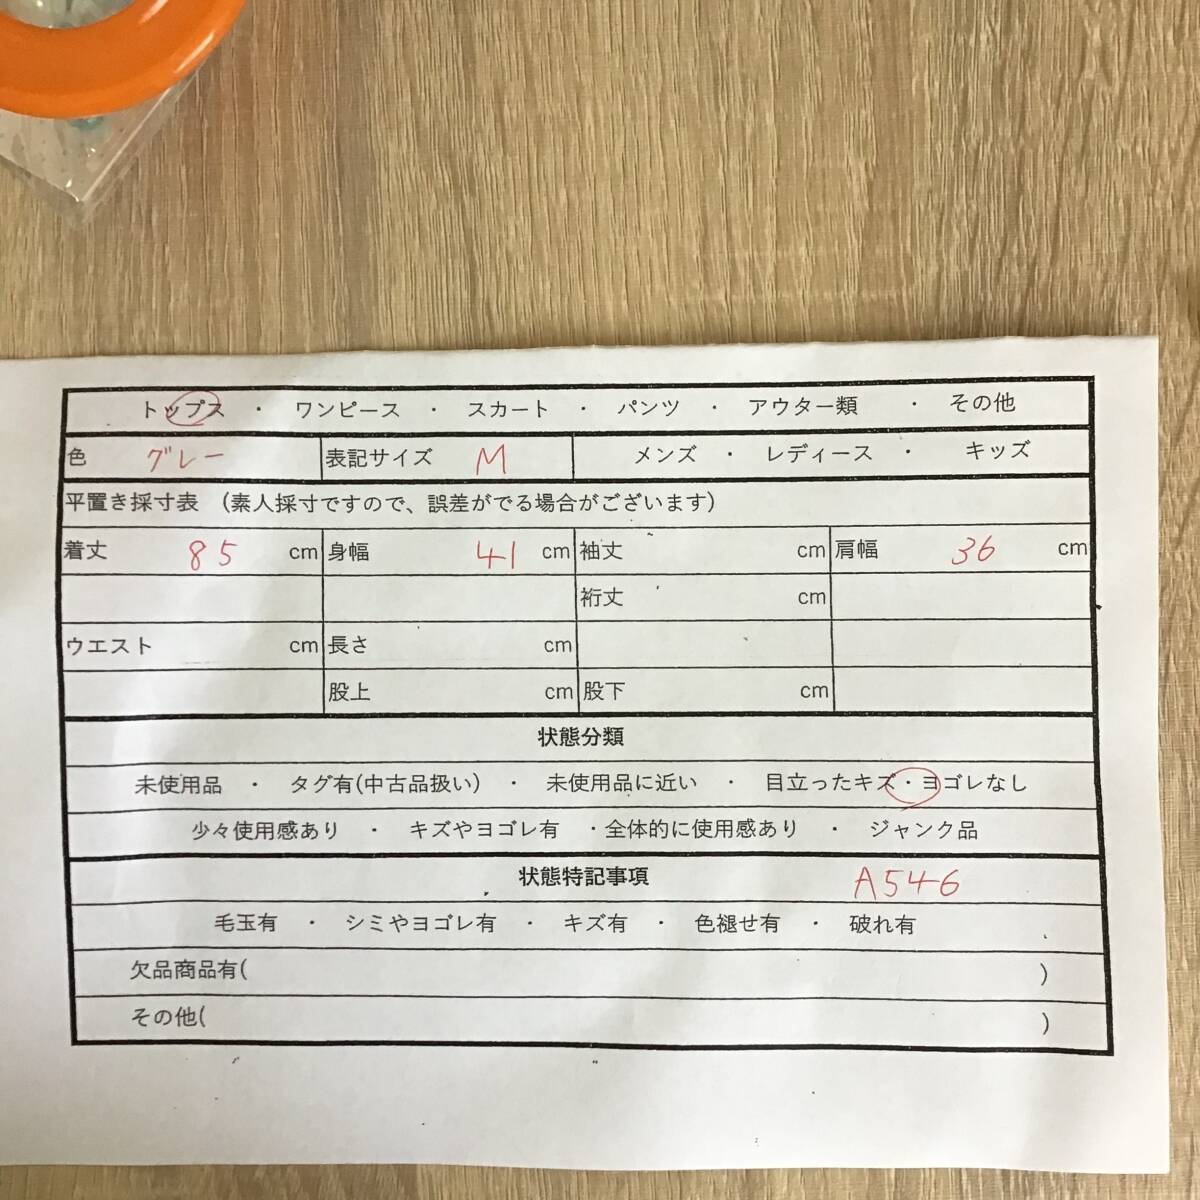 トップス ・ ワンピース ・ スカート ・ パンツ ・ アウター類 ・ その他
色 グレー 表記サイズ M メンズ ・ レディース ・ キッズ
平置き採寸表 (素人採寸ですので、誤差がでる場合がございます)
着丈 85 cm 身幅 41 cm 袖丈 cm 肩幅 36 cm
裄丈 cm
ウエスト cm 長さ cm
股上 cm 股下 cm
状態分類
未使用品 ・ タグ有(中古品扱い) ・ 未使用品に近い ・ 目立ったキズ・ヨゴレなし
少々使用感あり ・ キズやヨゴレ有 ・全体的に使用感あり ・ ジャンク品
状態特記事項 A546
毛玉有 ・ シミやヨゴレ有 ・ キズ有 ・ 色褪せ有 ・ 破れ有
欠品商品有( )
その他( )